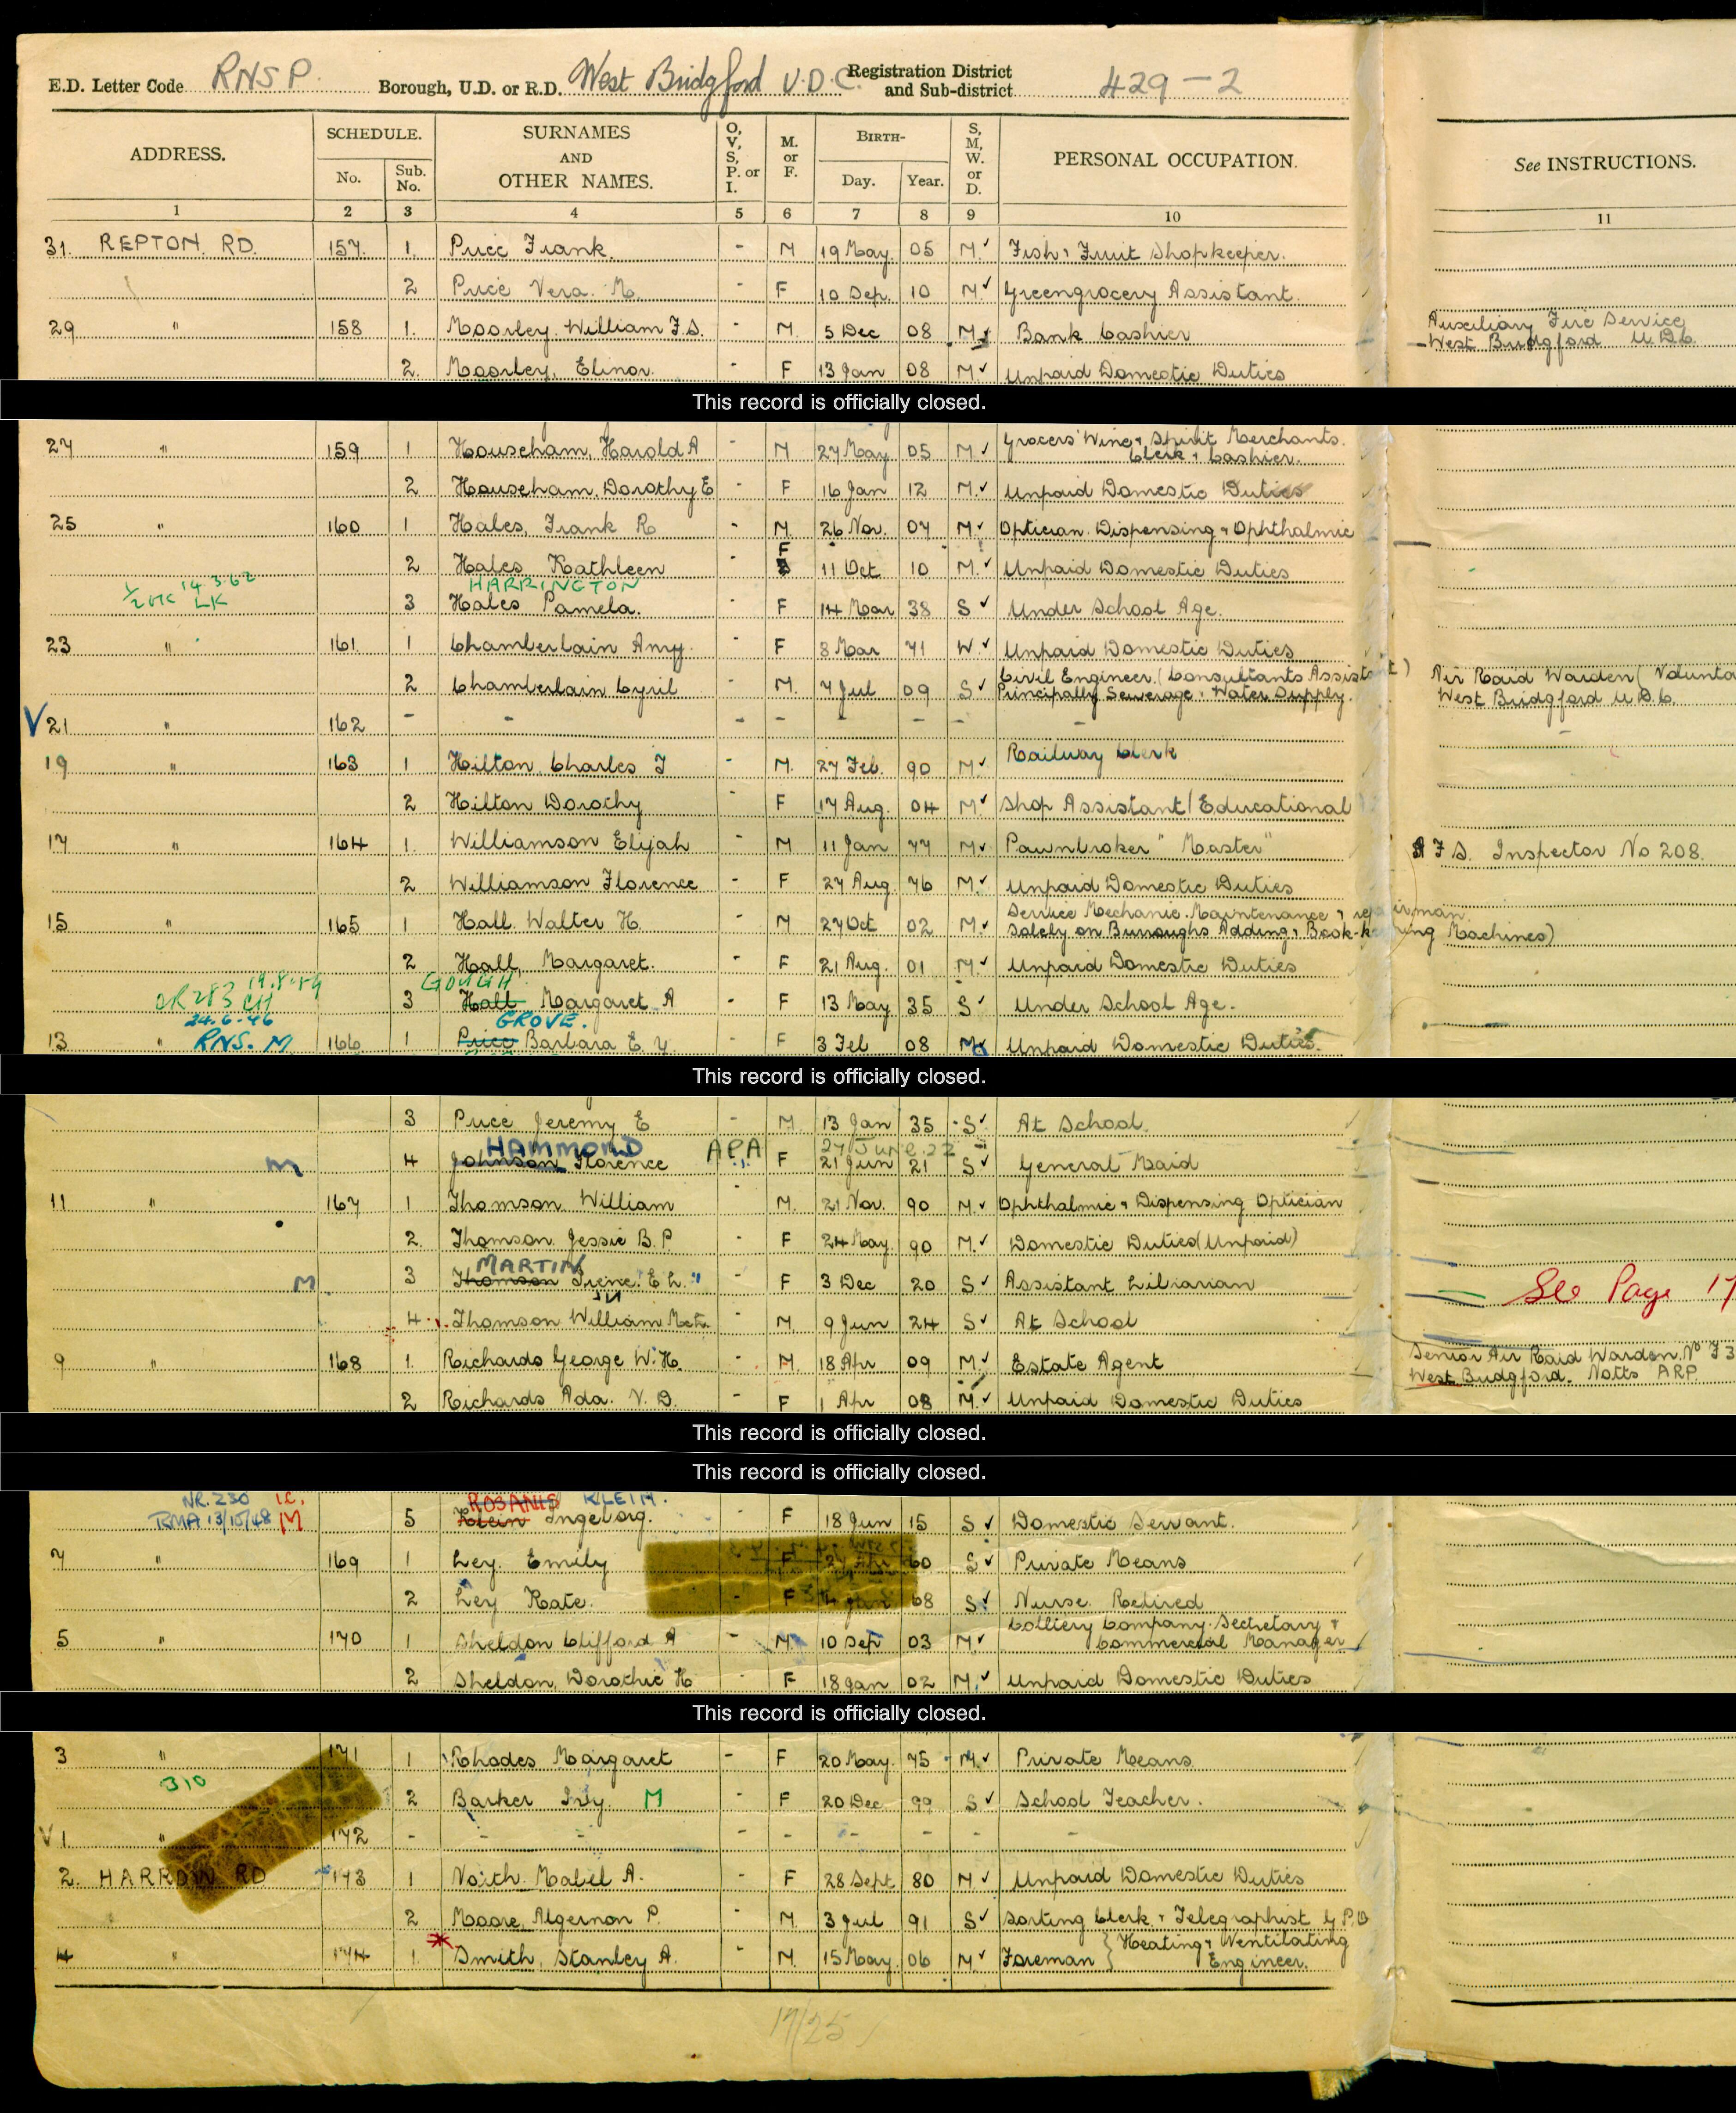 E.D. Letter Code RNSP. Borough, U.D. or R.D. West Bridgford U.D.C. Registration District and Sub-district 429-2
ADDRESS. SCHEDULE. No. Sub. No. SURNAMES AND OTHER NAMES. O, V, S, P. or I. M. or F. BIRTH- Day. Year. S, M, W. or D. PERSONAL OCCUPATION. See INSTRUCTIONS.
1 2 3 4 5 6 7 8 9 10 11
31. REPTON. RD. 157. 1. Price Frank. - M 19 May 05 M. Fish & Fruit Shopkeeper.
2 Price Vera. M. - F 10 Sep. 10 M. Greengrocery Assistant.
29 " 158 1. Moorley. William F.S. - M. 5 Dec 08 M Bank Cashier Auxiliary Fire Service
West Bridgford U.D.C.
2. Moorley, Elinor. - F 13 Jan 08 M Unpaid Domestic Duties
This record is officially closed.
27 " 159 1 Househam, Harold A - M 27 May 05 M Grocers' Wine & Spirit Merchants.
Clerk & Cashier.
2 Househam, Dorothy E - F 16 Jan 12 M. Unpaid Domestic Duties
25 " 160 1 Hales, Frank R - M 26 Nov. 07 M. Optician. Dispensing & Ophthalmic
2 Hales Kathleen - F 11 Oct 10 M. Unpaid Domestic Duties
14.3.62 HARRINGTON
LK 3 Hales Pamela. - F 14 Mar 38 S Under School Age.
23 " 161 1 Chamberlain Amy. - F 8 Mar 71 W. Unpaid Domestic Duties
2 Chamberlain Cyril - M. 7 Jul 09 S Civil Engineer. (Consultants Assistant) Air Raid Warden (Volunta
Principally Sewerage & Water Supply. West Bridgford U.D.C.
V 21 " 162 - - - - - - - -
19 " 163 1 Hilton, Charles J - M. 27 Feb. 90 M. Railway Clerk
2 Hilton Dorothy - F 17 Aug. 04 M Shop Assistant (Educational)
17 " 164 1. Williamson Elijah - M 11 Jan 77 M. Pawnbroker "Master" A F S. Inspector No 208.
2 Williamson Florence - F 27 Aug. 76 M. Unpaid Domestic Duties
15 " 165 1 Hall. Walter H. - M 27 Oct 02 M. Service Mechanic. Maintenance & repairman.
Solely on Burroughs Adding & Book-keeping Machines)
2 Hall, Margaret. - F 21 Aug. 01 M. Unpaid Domestic Duties
GOUGH
3 Hall Margaret A - F 13 May 35 S Under School Age.
24.6.46 GROVE.
13 " RNS. M 166 1 Price Barbara E. Y. - F 3 Feb 08 M Unpaid Domestic Duties.
This record is officially closed.
3 Price Jeremy E - M. 13 Jan 35 S At School.
HAMMOND APA 27 June 22
M 4 Johnson Florence F 21 Jun 21 S General Maid
11 " 167 1 Thomson William M. 21 Nov. 90 M. Ophthalmic & Dispensing Optician
2. Thomson Jessie B. P. - F 24 May 90 M. Domestic Duties (Unpaid)
MARTIN
M 3 Thomson Irene. E L. - F 3 Dec 20 S Assistant Librarian See Page 17
4 Thomson William - M. 9 Jun 24 S At School
9 " 168 1. Richards George W. H. - M. 18 Apr 09 M. Estate Agent Senior Air Raid Warden. No F3
West Bridgford. Notts ARP
2 Richards Ada. V. D. F 1 Apr 08 M. Unpaid Domestic Duties
This record is officially closed.
This record is officially closed.
NR. 230 I.C. ROSANIS KLEIN.
RMA 13/10/48 M 5 Klein Ingeborg. - F 18 Jun 15 S Domestic Servant.
7 " 169 1 Ley. Emily F 60 S Private Means
2 Ley Kate. - F Jan 68 S Nurse Retired
5 " 170 1 Sheldon Clifford A - M. 10 Sep 03 M. Colliery Company Secretary &
Commercial Manager
2 Sheldon, Dorothie H - F 18 Jan 02 M. Unpaid Domestic Duties
This record is officially closed.
3 " 171 1 Rhodes Margaret - F 20 May. 75 M. Private Means.
310 2 Barker Ivy. M - F 20 Dec 99 S School Teacher.
V 1 " 172 - - - - - - - -
2. HARROW RD 173 1 Mabel A. - F 28 Sept 80 M. Unpaid Domestic Duties
2 Moore, Algernon P. - M. 3 Jul 91 S Sorting Clerk & Telegraphist G.P.O
4 " 174 1. Smith, Stanley A. - M. 15 May 06 M Foreman } Heating & Ventilating
Engineer.
17/25